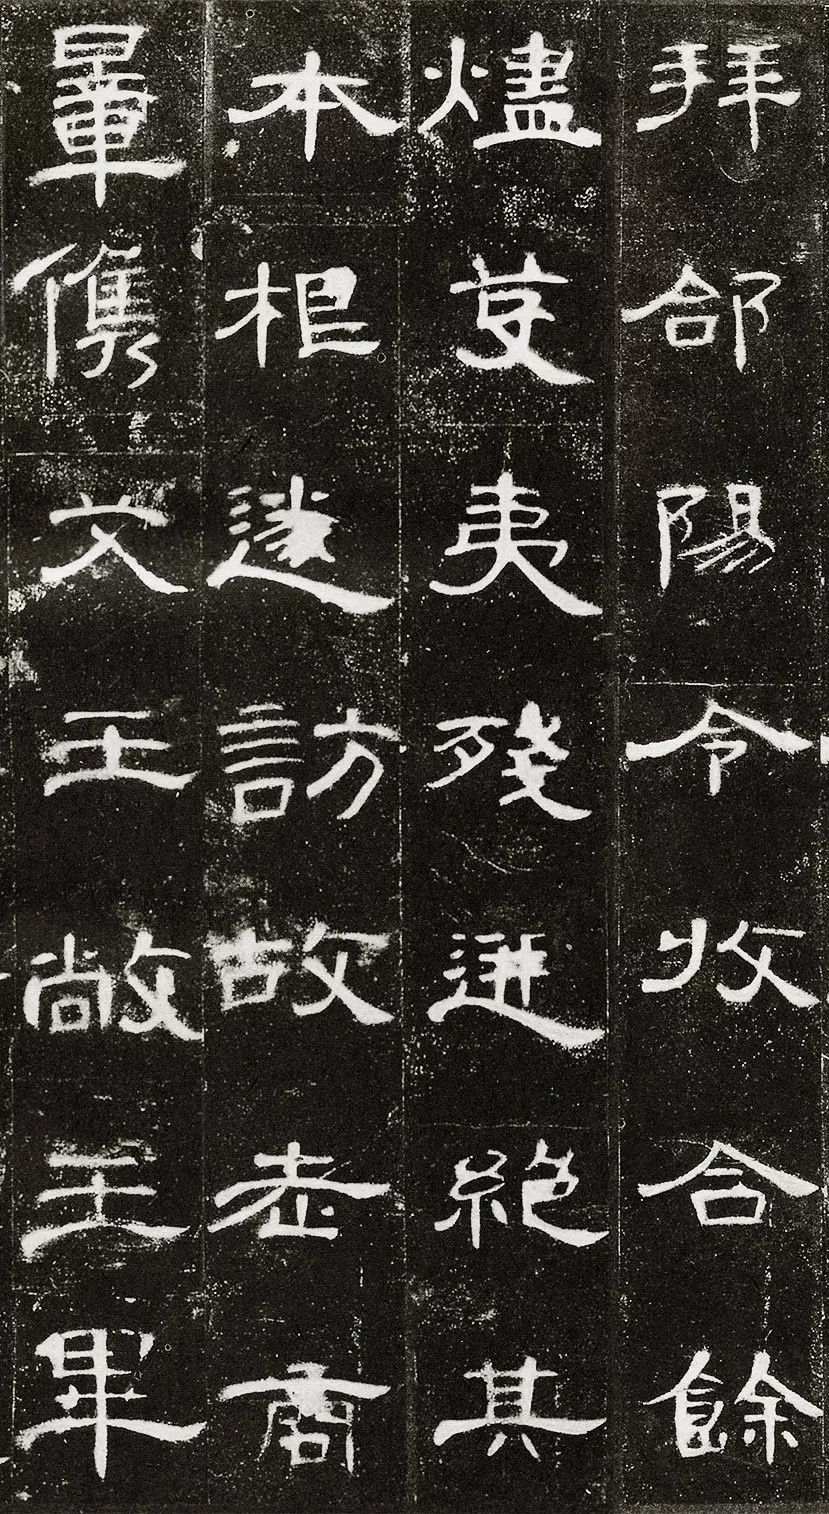 拜郃陽令收合餘
燼芟夷殘迸絕其
本根遂訪故老商
量儁艾王敞王畢